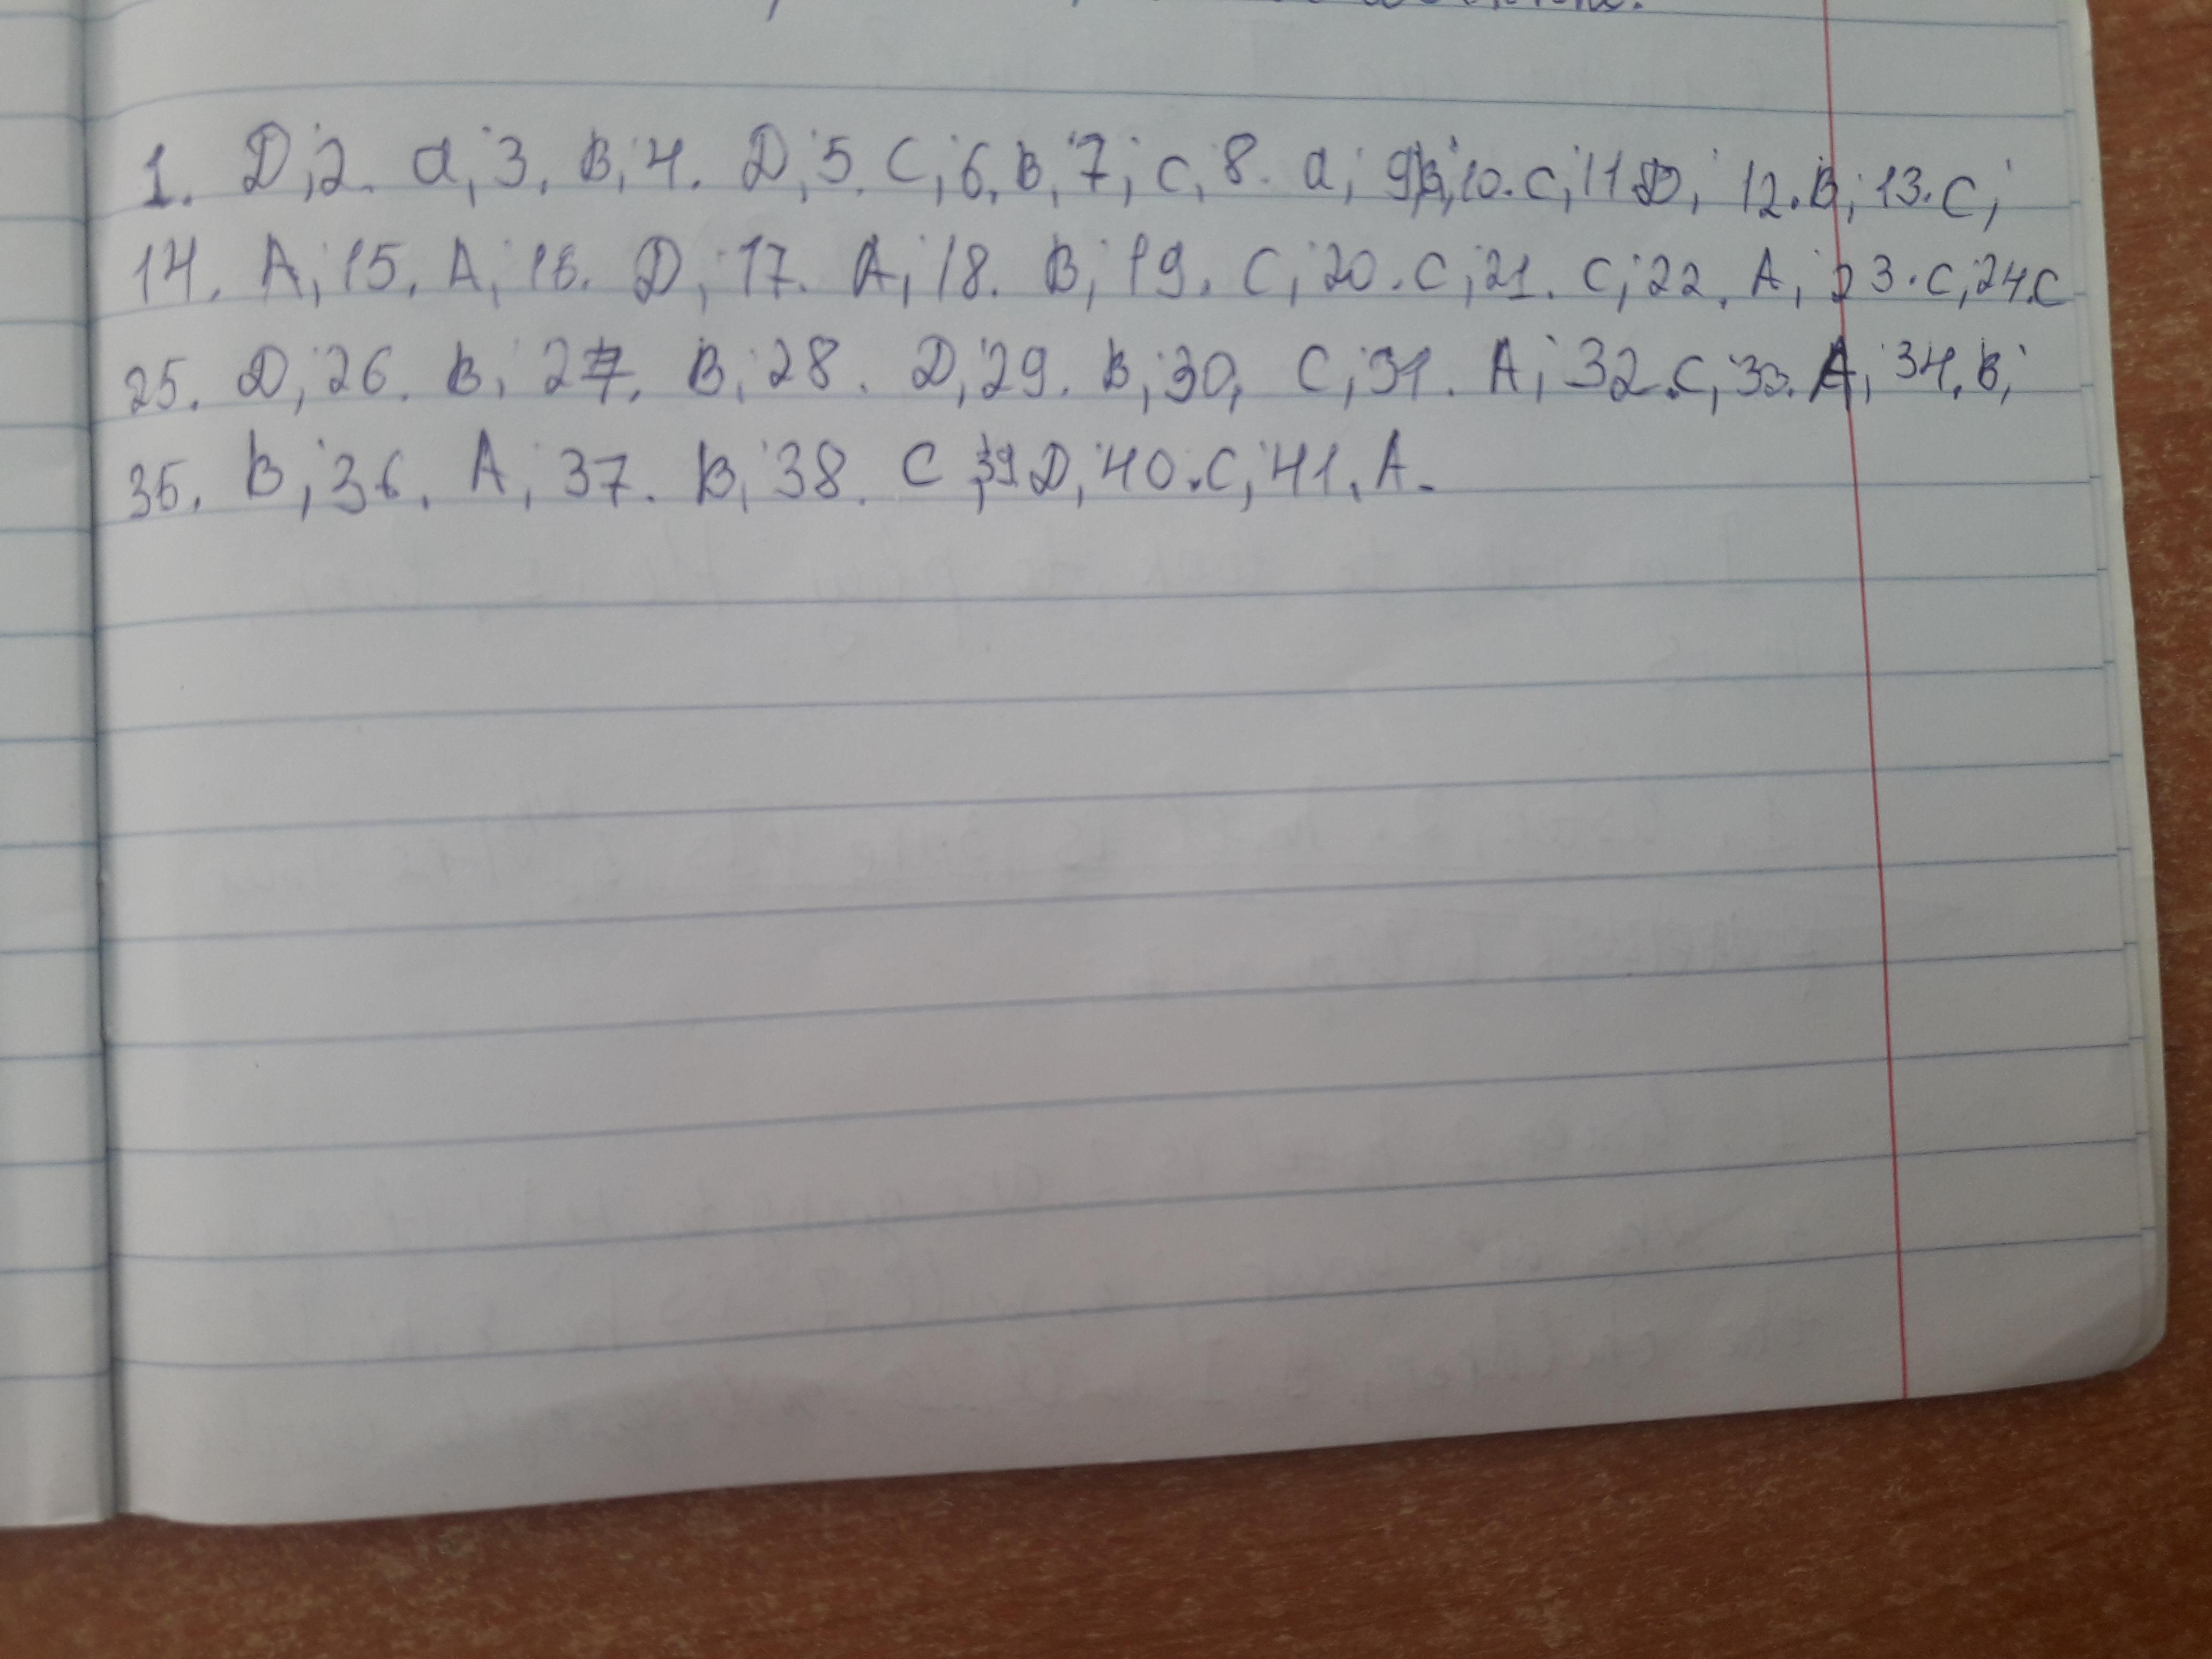 1. D; 2. a; 3. B; 4. D; 5. C; 6. B; 7; C; 8. a; 9B; 10. C; 11 D; 12. B; 13. C;
14. A; 15. A; 16. D; 17. A; 18. B; 19. C; 20. C; 21. C; 22. A; 23. C; 24. C
25. D; 26. B; 27. B; 28. D; 29. B; 30, C; 31. A; 32. C; 33. A; 34. B;
35. B; 36. A; 37. B; 38. C; 39 D; 40. C; 41. A.